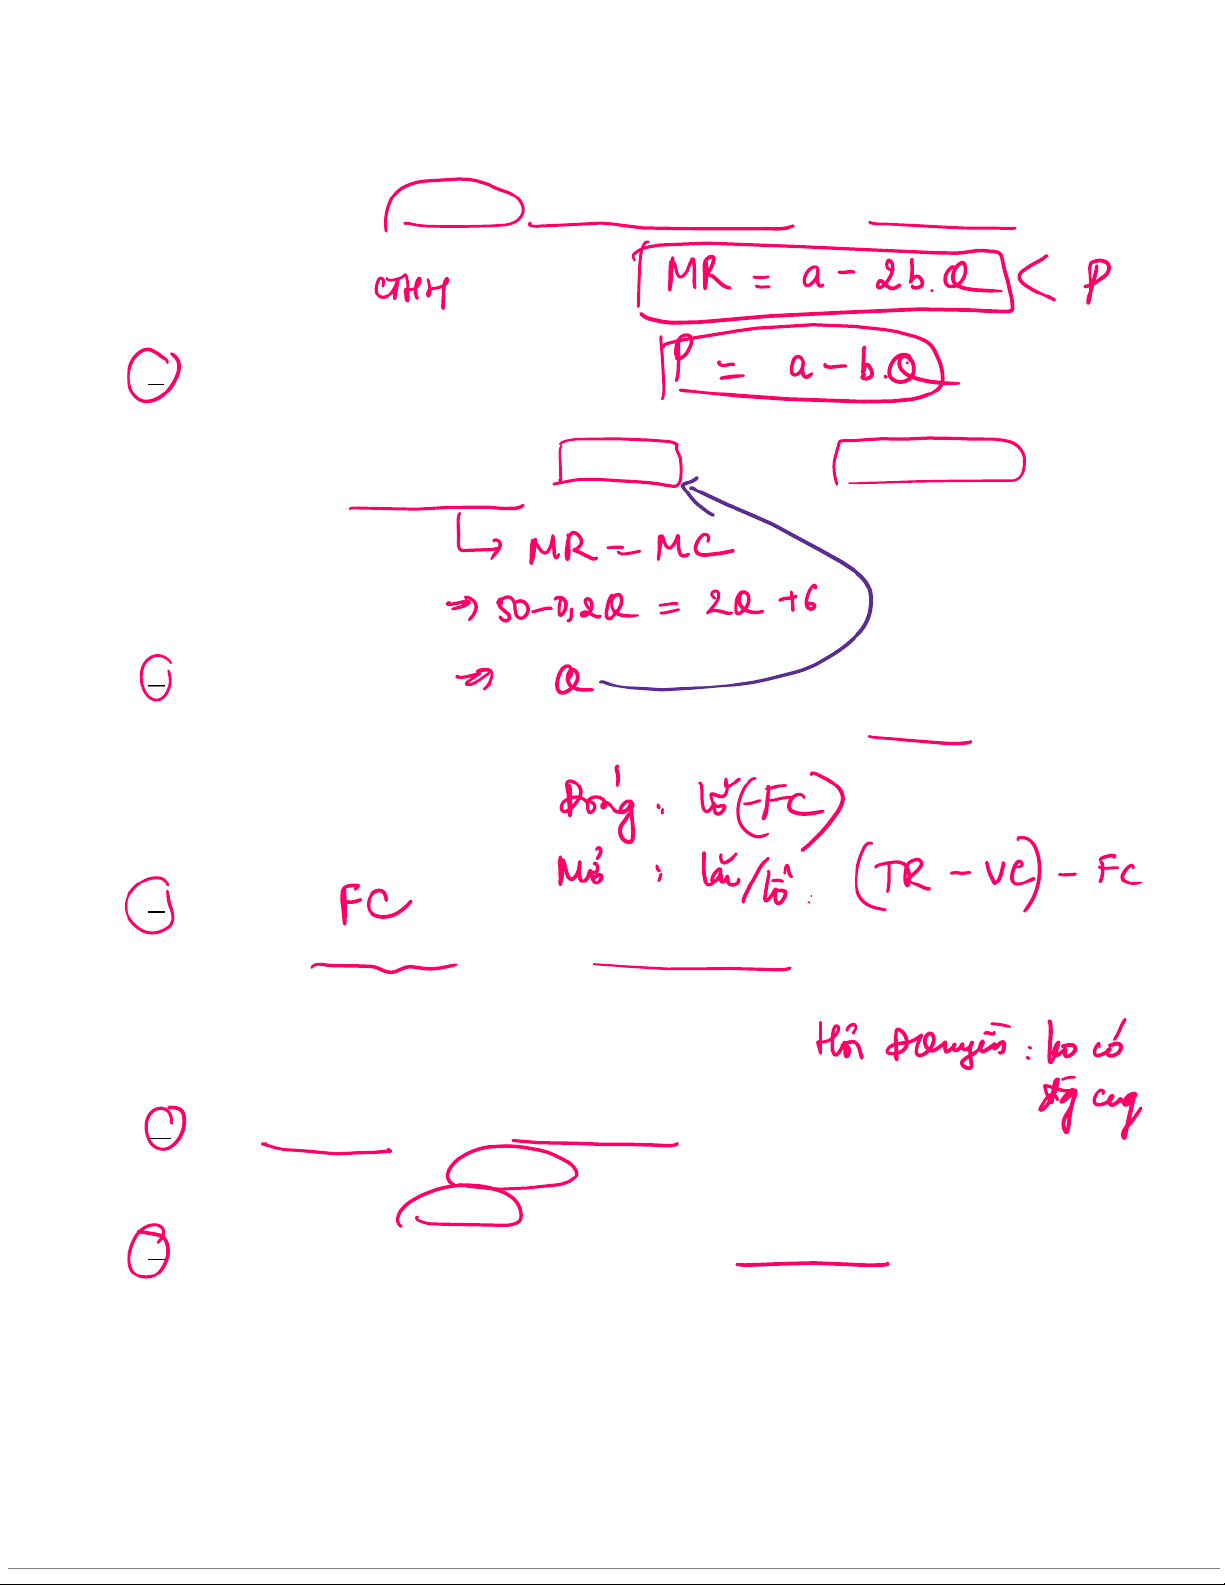 MR = a - 2b.Q < P
CTHH
P = a - b.Q
↳ MR = MC
⇒ 50 - 0,2Q = 2Q + 6
⇒ Q
Đóng : lỗ (-FC)
Mở : lãi/lỗ : (TR - VC) - FC
FC
Hãng ĐQuyền : ko có
đg cung